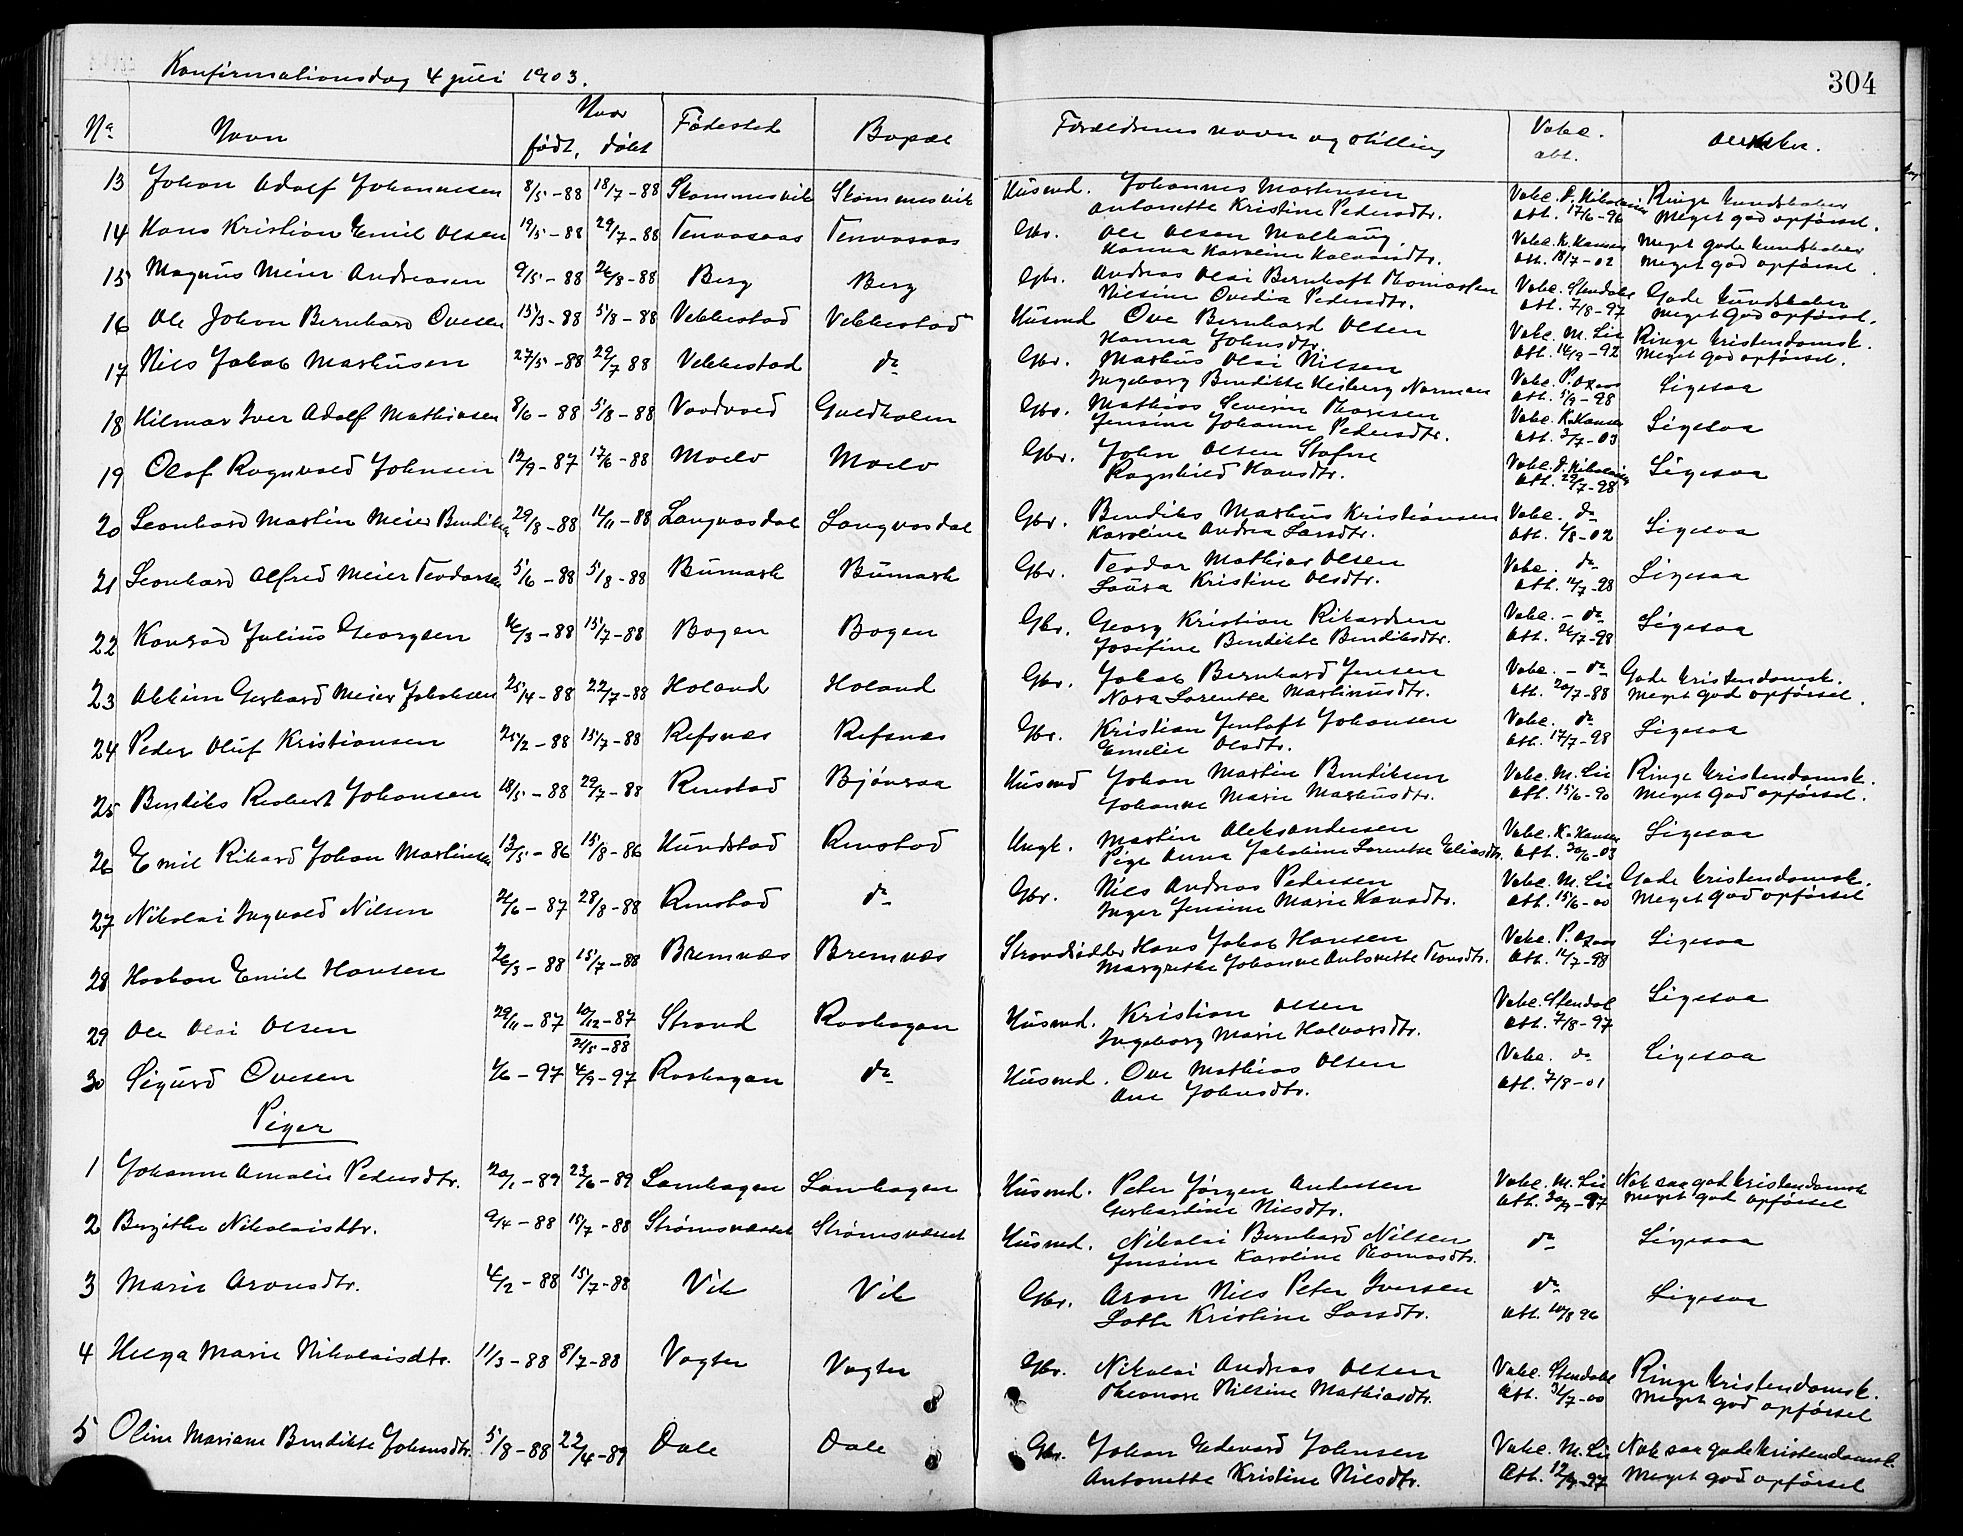 Konfirmationsdag 4 juli 1903.
304
No Navn Naar født, døbt Fødested Bopæl Forældrenes navn og stilling Vakc. att. Anmrkn.
13 Johan Adolf Johannesen 8/5-88 18/7-88 Skommesvik Skommesvik Husmd. Johannes Martensen Vakc. D. Nikolaisen Ringe kundskaber
Antonette Kristine Pedersdtr. Att. 17/6-96 Meget god opførsel.
14 Hans Kristian Emil Olsen 19/5-88 29/7-88 Tennaasaas Tennaasaas Gbr. Ole Olsen Vakc. K. Hansen Meget gode kundskaber
Hanna Karoline Halvorsdtr. Att. 18/7-02 Meget god opførsel.
15 Magnus Meier Andreasen 9/5-88 26/8-88 Berg Berg Gbr. Andreas Olai Bernhoft Thomassen Vakc. Stendal Gode kundskaber
Nilsine Ovedia Pedersdtr. Att. 7/8-97 Meget god opførsel.
16 Ole Johan Bernhard Ovesen 15/3-88 5/8-88 Vebbestad Vebbestad Husmd Ove Bernhard Olsen Vakc. M. Lie Ringe kristendomsk.
Hanna Johnsdtr. Att. 14/9-92 Meget god opførsel.
17 Nils Jakob Markusen 27/5-88 29/7 88 Vebbestad do Gbr. Markus Olai Nilsen Vakc. P. Axaas Ligesaa
Ingeborg Bendikte Heiberg Norman Att. 5/9-98
18 Hilmar Iver Adolf Mathiasen 8/6-88 5/8-88 Vaadvold Guldholm Gbr. Mathias Severin Thoresen Vakc. K. Hansen Ligesaa
Jensine Johanna Pedersdtr. Att. 3/7-03
19 Olaf Ragnvald Johnsen 12/9-87 17/6-88 Moelv Moelv Gbr. John Olsen Stafne Vakc. D. Nikolaisen Ligesaa
Ragnhild Hansdtr. Att. 29/7-98
20 Leonhard Martin Meier Bendiksen 29/8-88 11/11-88 Langvasdal Langvasdal Gbr. Bendiks Markus Kristiansen Vakc. do Ligesaa
Karoline Andrea Larsdtr. Att. 1/8-02
21 Leonhard Alfred Meier Teodorsen 5/6-88 5/8-88 Bumark Bumark Gbr. Teodor Mathias Olsen Vakc. do Ligesaa
Laura Kristine Olsdtr. Att. 12/7-98
22 Konrad Julius Georgsen 16/3-88 15/7-88 Bogen Bogen Gbr. Georg Kristian Rikardsen Vakc. - do Ligesaa
Josefine Bendikte Bendiksdtr. Att. 26/7-98
23 Abkim Gerhard Meier Jakobsen 25/4-88 22/7-88 Holand Holand Gbr. Jakob Bernhard Jensen Vakc. - do Gode kristendomsk.
Nora Lorentse Martinusdtr. Att. 20/7-88 Meget god opførsel.
24 Peder Oluf Kristiansen 25/2-88 15/7-88 Refsnæs Refsnæs Gbr. Kristian Jentoft Johansen Vakc. do Ligesaa
Emelie Olsdtr. Att. 17/7-98
25 Bendiks Robert Johansen 18/5-88 29/7-88 Rinstad Bjørnraa Husmd Johan Martin Bendiksen Vakc. M. Lie Ringe kristendomsk.
Johanna Marie Markusdtr. Att. 15/6-90 Meget god opførsel.
26 Emil Rikard Johan Martinsen 13/5-86 15/8-86 Hundstad Rinstad Ungk. Martin Aleksandersen Vakc. K. Hansen Ligesaa
Pige Anna Jakobine Lorentse Eliasdtr. Att. 30/6-03
27 Nikolai Ingvald Nilsen 26/6-87 28/8-88 Rinstad do Gbr. Nils Andreas Pedersen Vakc. M. Lie Gode kristendomsk.
Inger Jensine Marie Hansdtr. Att. 15/6-00 Meget god opførsel
28 Haakon Emil Hansen 26/3-88 15/7-88 Bremnæs Bremnæs Strandsidder Hans Jakob Hansen Vakc. P. Axaas Ligesaa
Margrethe Johanna Antonette Tronsdtr. Att. 14/7-98
29 Ole Olai Olsen 29/11-87 10/12-87 Strand Raahagan Husmd. Kristian Olsen Vakc. Stendal Ligesaa
21/5-88 Ingeborg Marie Halvorsdtr. Att. 7/8-97
30 Sigurd Ovesen 1/6-97 4/9-97 Raahagan do Husmd. Ove Mathias Olsen Vakc. do Ligesaa
Ane Johnsdtr. Att. 7/8-01
Piger
1 Johanne Amalie Pedersdtr. 20/1-89 23/6-89 Lamhagen Lamhagen Husmd. Peter Jørgen Andersen Vakc. M. Lie Nok saa god kristendomsk
Gerhardine Nilsdtr. Att. 30/9-97 Meget god opførsel
2 Birgithe Nikolaisdtr. 9/4-88 15/7-88 Strømsnæset Strømsnæset Husmd. Nikolai Bernhard Nilsen do Ligesaa
Jensine Karoline Thomasdtr.
3 Marie Aronsdtr. 4/2-88 15/7-88 Vik Vik Gbr. Aron Nils Peter Iversen do Ligesaa
Lotte Kristine Larsdtr. Att. 10/8 96
4 Helga Marie Nikolaisdtr. 11/3-88 8/7-88 Vogter Vogter Gbr. Nikolai Andreas Olsen Vakc. Stendal Ringe kristendomsk.
Eleonore Nilsine Mathiasdtr. Att. 31/7-00 Meget god opførsel
5 Oline Mariane Bendikte Johansdtr. 5/8-88 22/4-89 Dale Dale Gbr. Johan Edevard Johnsen Vakc. M. Lie Nok saa gode kristendomsk.
Antonette Kristine Nilsdtr. Att. 12/9-97 Meget god opførsel